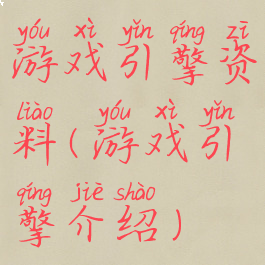 yóu xì yǐn qíng zī
游戏引擎资
liào yóu xì yǐn
料(游戏引
qíng jiè shào
擎介绍)